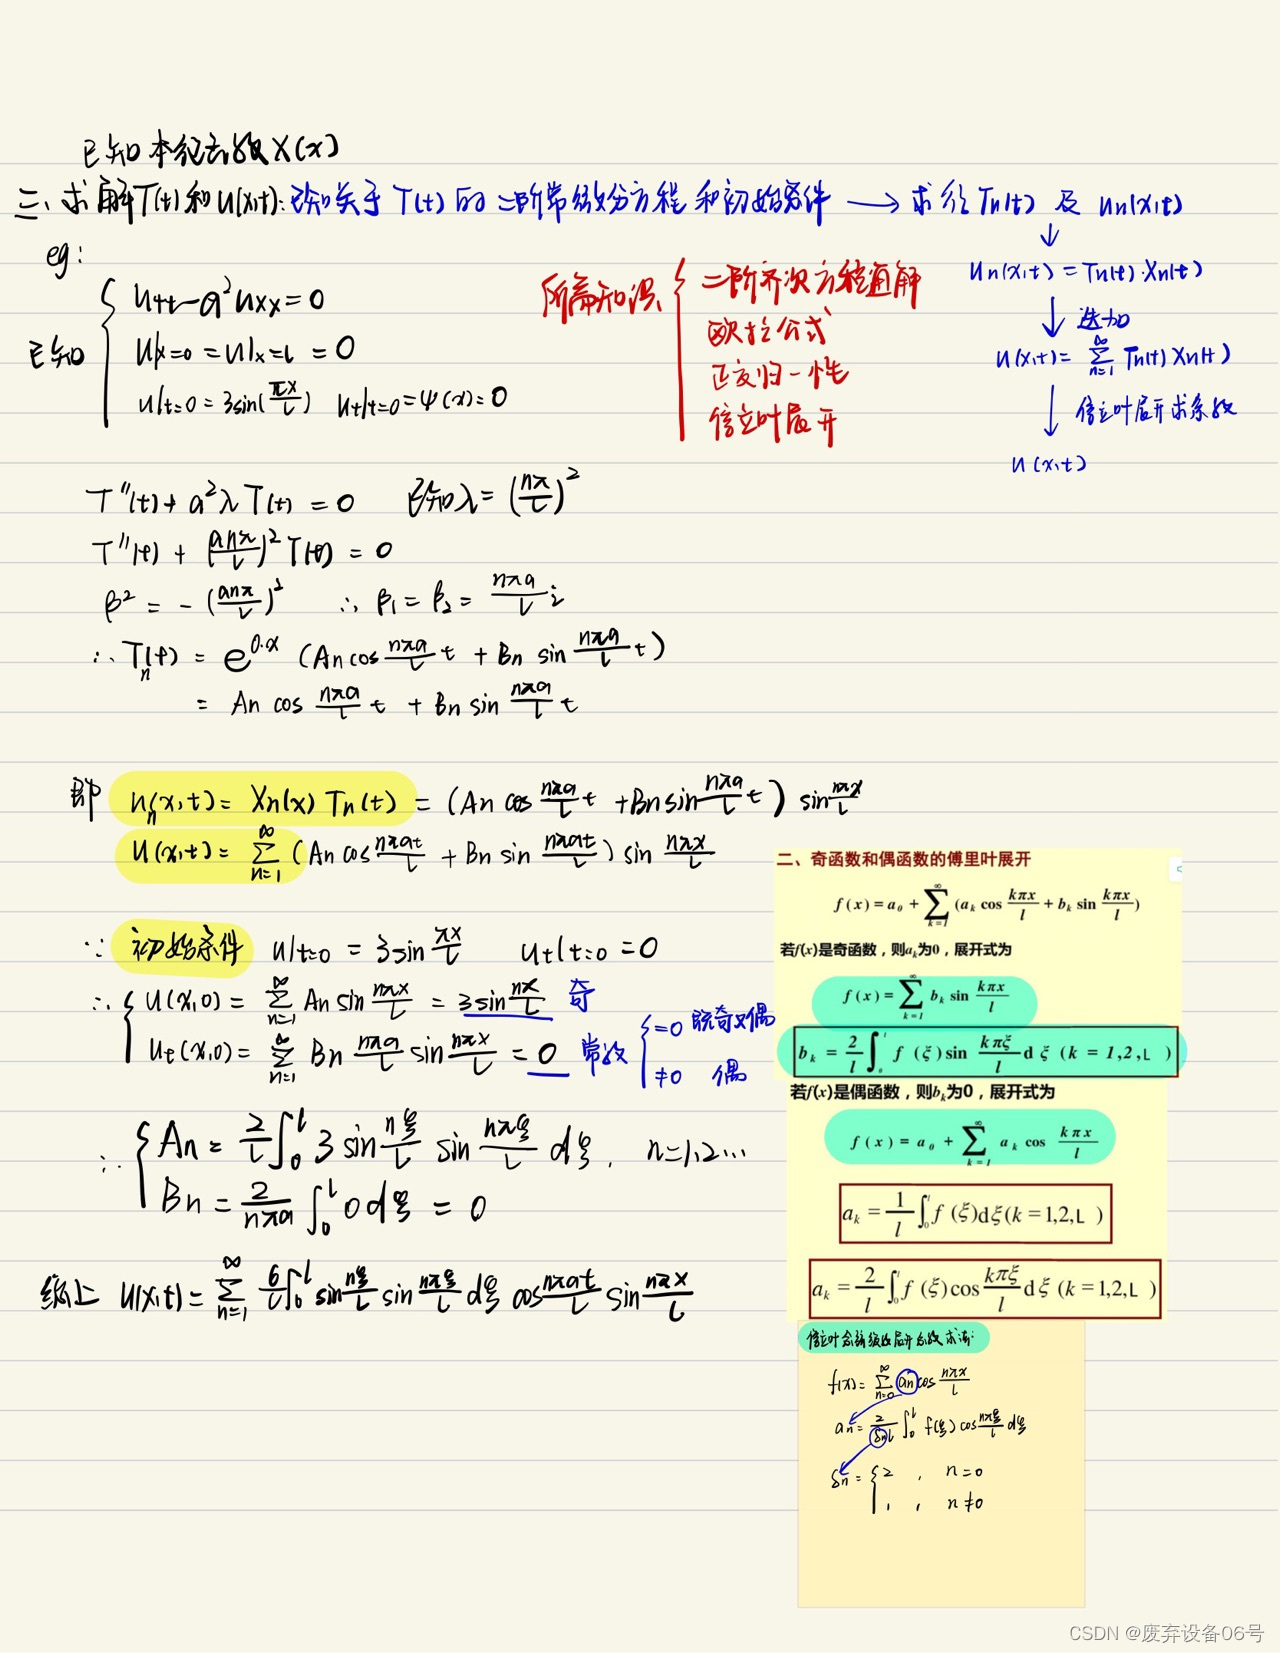 已知本征函数X(x)
三、求解T(t)和u(x,t): 已知关于T(t)的二阶常微分方程和初始条件 → 求得Tn(t) 及 un(x,t)
↓
un(x,t) = Tn(t)·Xn(t)
↓ 迭加
u(x,t) = ∑_{n=1}^{∞} Tn(t) Xn(t)
↓ 傅立叶展开求系数
u(x,t)
eg:
已知 { utt - a²uxx = 0
u|x=0 = u|x=L = 0
u|t=0 = 3sin(πx/L) ut|t=0 = ψ(x) = 0
所需知识 { 二阶齐次方程通解
欧拉公式
正交归一性
傅立叶展开
T''(t) + a²λT(t) = 0 已知λ = (nπ/L)²
T''(t) + (anπ/L)² T(t) = 0
β² = -(anπ/L)² ∴ β₁ = β₂ = nπa/L i
∴ Tn(t) = e^{0·x} (An cos nπa/L t + Bn sin nπa/L t)
= An cos nπa/L t + Bn sin nπa/L t
即 un(x,t) = Xn(x) Tn(t) = (An cos nπa/L t + Bn sin nπa/L t) sin nπx/L
u(x,t) = ∑_{n=1}^{∞} (An cos nπat/L + Bn sin nπat/L) sin nπx/L
∵ 初始条件 u|t=0 = 3sin πx/L ut|t=0 = 0
∴ { u(x,0) = ∑_{n=1}^{∞} An sin nπx/L = 3sin πx/L 奇
ut(x,0) = ∑_{n=1}^{∞} Bn nπa/L sin nπx/L = 0 常数 { =0 既奇又偶
≠0 偶
∴ { An = 2/L ∫_0^L 3 sin nξ/L sin nπξ/L dξ, n=1,2...
Bn = 2/nπa ∫_0^L 0 dξ = 0
综上 u(x,t) = ∑_{n=1}^{∞} 6/L ∫_0^L sin nξ/L sin nπξ/L dξ cos nπat/L sin nπx/L
二、奇函数和偶函数的傅里叶展开
f(x) = a₀ + ∑_{k=1}^{∞} (a_k cos kπx/l + b_k sin kπx/l)
若f(x)是奇函数，则a_k为0，展开式为
f(x) = ∑_{k=1}^{∞} b_k sin kπx/l
b_k = 2/l ∫_0^l f(ξ) sin kπξ/l d ξ (k = 1,2,L )
若f(x)是偶函数，则b_k为0，展开式为
f(x) = a₀ + ∑_{k=1}^{∞} a_k cos kπx/l
a_k = 1/l ∫_0^l f(ξ)dξ(k = 1,2,L )
a_k = 2/l ∫_0^l f(ξ)cos kπξ/l d ξ (k = 1,2,L )
傅立叶余弦级数展开系数求法:
f(x) = ∑_{n=0}^{∞} an cos nπx/L
an = 2/δnL ∫_0^L f(ξ) cos nπξ/L dξ
δn = { 2 , n=0
1 , n≠0
CSDN @废弃设备06号